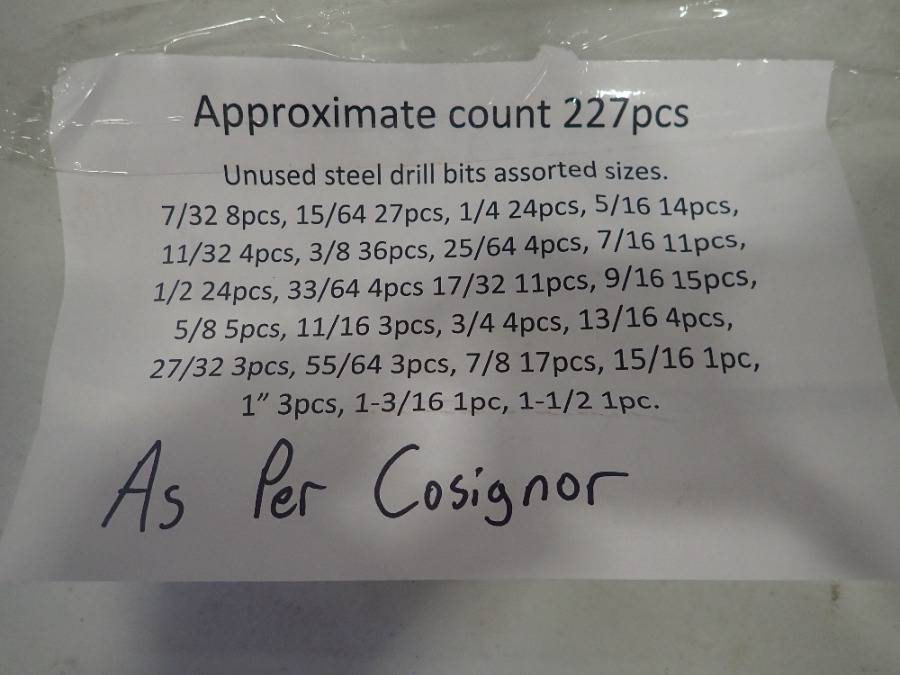 Approximate count 227pcs
Unused steel drill bits assorted sizes.
7/32 8pcs, 15/64 27pcs, 1/4 24pcs, 5/16 14pcs,
11/32 4pcs, 3/8 36pcs, 25/64 4pcs, 7/16 11pcs,
1/2 24pcs, 33/64 4pcs 17/32 11pcs, 9/16 15pcs,
5/8 5pcs, 11/16 3pcs, 3/4 4pcs, 13/16 4pcs,
27/32 3pcs, 55/64 3pcs, 7/8 17pcs, 15/16 1pc,
1” 3pcs, 1-3/16 1pc, 1-1/2 1pc.
As Per Cosignor